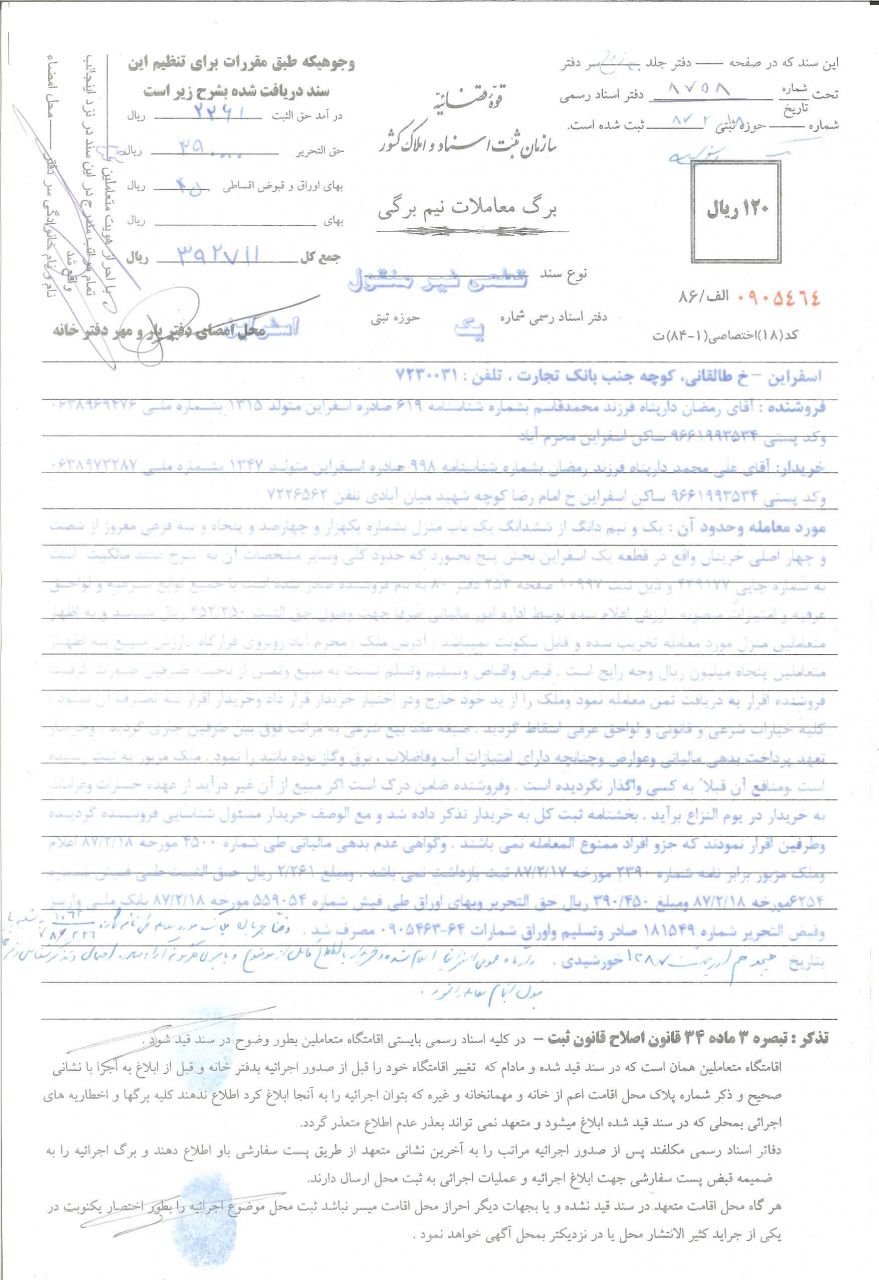 این سند که در صفحه — دفتر جلد سر دفتر
تحت شماره ۸۷۵۸ دفتر اسناد رسمی
تاریخ
شماره — حوزه ثبتی ۸۷/۲/۱۸ ثبت شده است.
۱۲۰ ریال
۰۹۰۵۴۶۴ الف/۸۶
کد(۱۸)اختصاصی(۱-۸۴)ت
قوه قضائیه
سازمان ثبت اسناد و املاک کشور
برگ معاملات نیم برگی
نوع سند قطعی غیر منقول
دفتر اسناد رسمی شماره یک حوزه ثبتی اسفراین
وجوهیکه طبق مقررات برای تنظیم این
سند دریافت شده بشرح زیر است
در آمد حق الثبت ۲۲۶۱ ریال
حق التحریر ریال
بهای اوراق و قبوض اقساطی ریال
بهای ریال
جمع کل ۳۹۲۷۱۱ ریال
محل امضای دفتر یار و مهر دفتر خانه
با احراز هویت متعاملین
تمام مراتب مندرج در این سند در نزد اینجانب
واقع شد
نام و نام خانوادگی سر دفتر — محل امضاء
اسفراین – خ طالقانی، کوچه جنب بانک تجارت ، تلفن : ۷۲۳۰۰۳۱
فروشنده : آقای رمضان دارپناه فرزند محمدقاسم بشماره شناسنامه ۶۱۹ صادره اسفراین متولد ۱۳۱۵ بشماره ملی ۰۶۳۸۹۶۹۴۷۶
وکد پستی ۹۶۶۱۹۹۳۵۳۴ ساکن اسفراین محرم آباد
خریدار: آقای علی محمد دارپناه فرزند رمضان بشماره شناسنامه ۹۹۸ صادره اسفراین متولد ۱۳۴۷ بشماره ملی ۰۶۳۸۹۷۳۲۸۷
وکد پستی ۹۶۶۱۹۹۳۵۳۴ ساکن اسفراین خ امام رضا کوچه شهید میان آبادی تلفن ۷۲۲۶۵۶۲
مورد معامله وحدود آن : یک و نیم دانگ از ششدانگ یک باب منزل بشماره یکهزار و چهارصد و پنجاه و سه فرعی مفروز از شصت
و چهار اصلی خریتان واقع در قطعه یک اسفراین بخش پنج بجنورد که حدود کلی وسایر مشخصات آن به شرح سند مالکیت است
به شماره چاپی ۴۳۹۱۷۷ و ذیل ثبت ۱۰۹۹۷ صفحه ۲۵۳ دفتر ۸۰ به نام فروشنده صادر شده است با جمیع توابع شرعیه و لواحق
عرفیه و امتیازات منصوبه . ارزش اعلام شده توسط اداره امور مالیاتی صرفا جهت وصول حق الثبت ۴۵۲/۲۵۰ ریال میباشد و به اظهار
متعاملین منزل مورد معامله تخریب شده و قابل سکونت نمیباشد . آدرس ملک : محرم آباد روبروی قرارگاه .ارزش مبیع به اظهار
متعاملین پنجاه میلیون ریال وجه رایج است . قبض واقباض وتسلیم وتسلم نسبت به مبیع وثمن از ناحیه طرفین صورت گرفت
فروشنده اقرار به دریافت ثمن معامله نمود وملک را از ید خود خارج ودر اختیار خریدار قرار داد وخریدار اقرار به تصرف آن نمود .
کلیه خیارات شرعی و قانونی و لواحق عرفی اسقاط گردید . صیغه عقد بیع شرعی به مراتب فوق بین طرفین جاری گردید . وخریدار
تعهد پرداخت بدهی مالیاتی وعوارض وچنانچه دارای امتیازات آب وفاضلاب ، برق وگاز بوده باشد را نمود . ملک مزبور به ثبت رسیده
است .ومنافع آن قبلا به کسی واگذار نگردیده است . وفروشنده ضامن درک است اگر مبیع از آن غیر درآید از عهده خسارات وغرامات
به خریدار در یوم النزاع برآید . بخشنامه ثبت کل به خریدار تذکر داده شد و مع الوصف خریدار مسئول شناسایی فروشنده گردیده
وطرفین اقرار نمودند که جزو افراد ممنوع المعامله نمی باشند . وگواهی عدم بدهی مالیاتی طی شماره ۴۵۰۰ مورخه ۸۷/۲/۱۸ اعلام
وملک مزبور برابر نامه شماره ۲۳۹۰ مورخه ۸۷/۲/۱۷ ثبت بازداشت نمی باشد . ومبلغ ۲/۲۶۱ ریال حق الثبت طی فیش شماره
۶۲۵۴مورخه ۸۷/۲/۱۸ ومبلغ ۳۹۰/۴۵۰ ریال حق التحریر وبهای اوراق طی فیش شماره ۵۵۹۰۵۴ مورخه ۸۷/۲/۱۸ بانک ملی واریز
وقبض التحریر شماره ۱۸۱۵۴۹ صادر وتسلیم واوراق شمارات ۶۴-۰۹۰۵۴۶۳ مصرف شد .
بتاریخ هیجدهم اردیبهشت ۱۳۸۷ خورشیدی .
تذکر : تبصره ۳ ماده ۳۴ قانون اصلاح قانون ثبت – در کلیه اسناد رسمی بایستی اقامتگاه متعاملین بطور وضوح در سند قید شود .
اقامتگاه متعاملین همان است که در سند قید شده و مادام که تغییر اقامتگاه خود را قبل از صدور اجرائیه بدفتر خانه و قبل از ابلاغ به اجرا با نشانی
صحیح و ذکر شماره پلاک محل اقامت اعم از خانه و مهمانخانه و غیره که بتوان اجرائیه را به آنجا ابلاغ کرد اطلاع ندهند کلیه برگها و اخطاریه های
اجرائی بمحلی که در سند قید شده ابلاغ میشود و متعهد نمی تواند بعذر عدم اطلاع متعذر گردد.
دفاتر اسناد رسمی مکلفند پس از صدور اجرائیه مراتب را به آخرین نشانی متعهد از طریق پست سفارشی باو اطلاع دهند و برگ اجرائیه را به
ضمیمه قبض پست سفارشی جهت ابلاغ اجرائیه و عملیات اجرائی به ثبت محل ارسال دارند.
هر گاه محل اقامت متعهد در سند قید نشده و یا بجهات دیگر احراز محل اقامت میسر نباشد ثبت محل موضوع اجرائیه را بطور اختصار یکنوبت در
یکی از جراید کثیر الانتشار محل یا در نزدیکتر بمحل آگهی خواهد نمود .